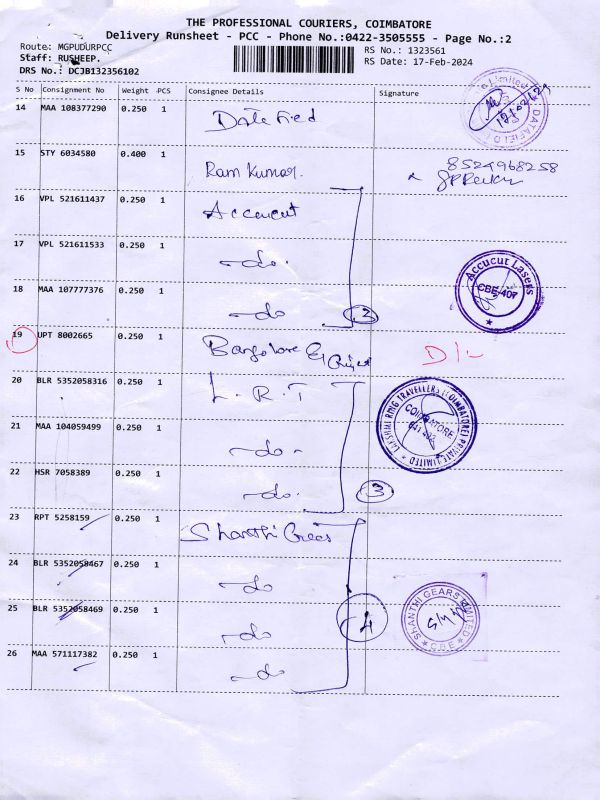 THE PROFESSIONAL COURIERS, COIMBATORE
Delivery Runsheet - PCC - Phone No.:0422-3505555 - Page No.:2
Route: MGPUDURPCC
RS No.: 1323561
Staff: RUSHEEP.
RS Date: 17-Feb-2024
DRS No.: DCJB132356102
S No Consignment No Weight PCS Consignee Details Signature
14 MAA 108377290 0.250 1 Datafied
15 STY 6034580 0.400 1 Ram Kumar. 8524968258
16 VPL 521611437 0.250 1 Accucut
17 VPL 521611533 0.250 1 -do-
Accucut Lasers
CBE-407
18 MAA 107777376 0.250 1 -do
3
19 UPT 8002665 0.250 1 Bangalore
20 BLR 5352058316 0.250 1 L. R. T
LAKSHMI RING TRAVELLERS (COIMBATORE) PRIVATE LIMITED
COIMBATORE
21 MAA 104059499 0.250 1 -do-
22 HSR 7058389 0.250 1 -do-
3
23 RPT 5258159 0.250 1 Shanthi Gears
24 BLR 5352058467 0.250 1 -do
25 BLR 5352058469 0.250 1 -do
4
SHANTHI GEARS LIMITED
CBE
26 MAA 571117382 0.250 1 -do